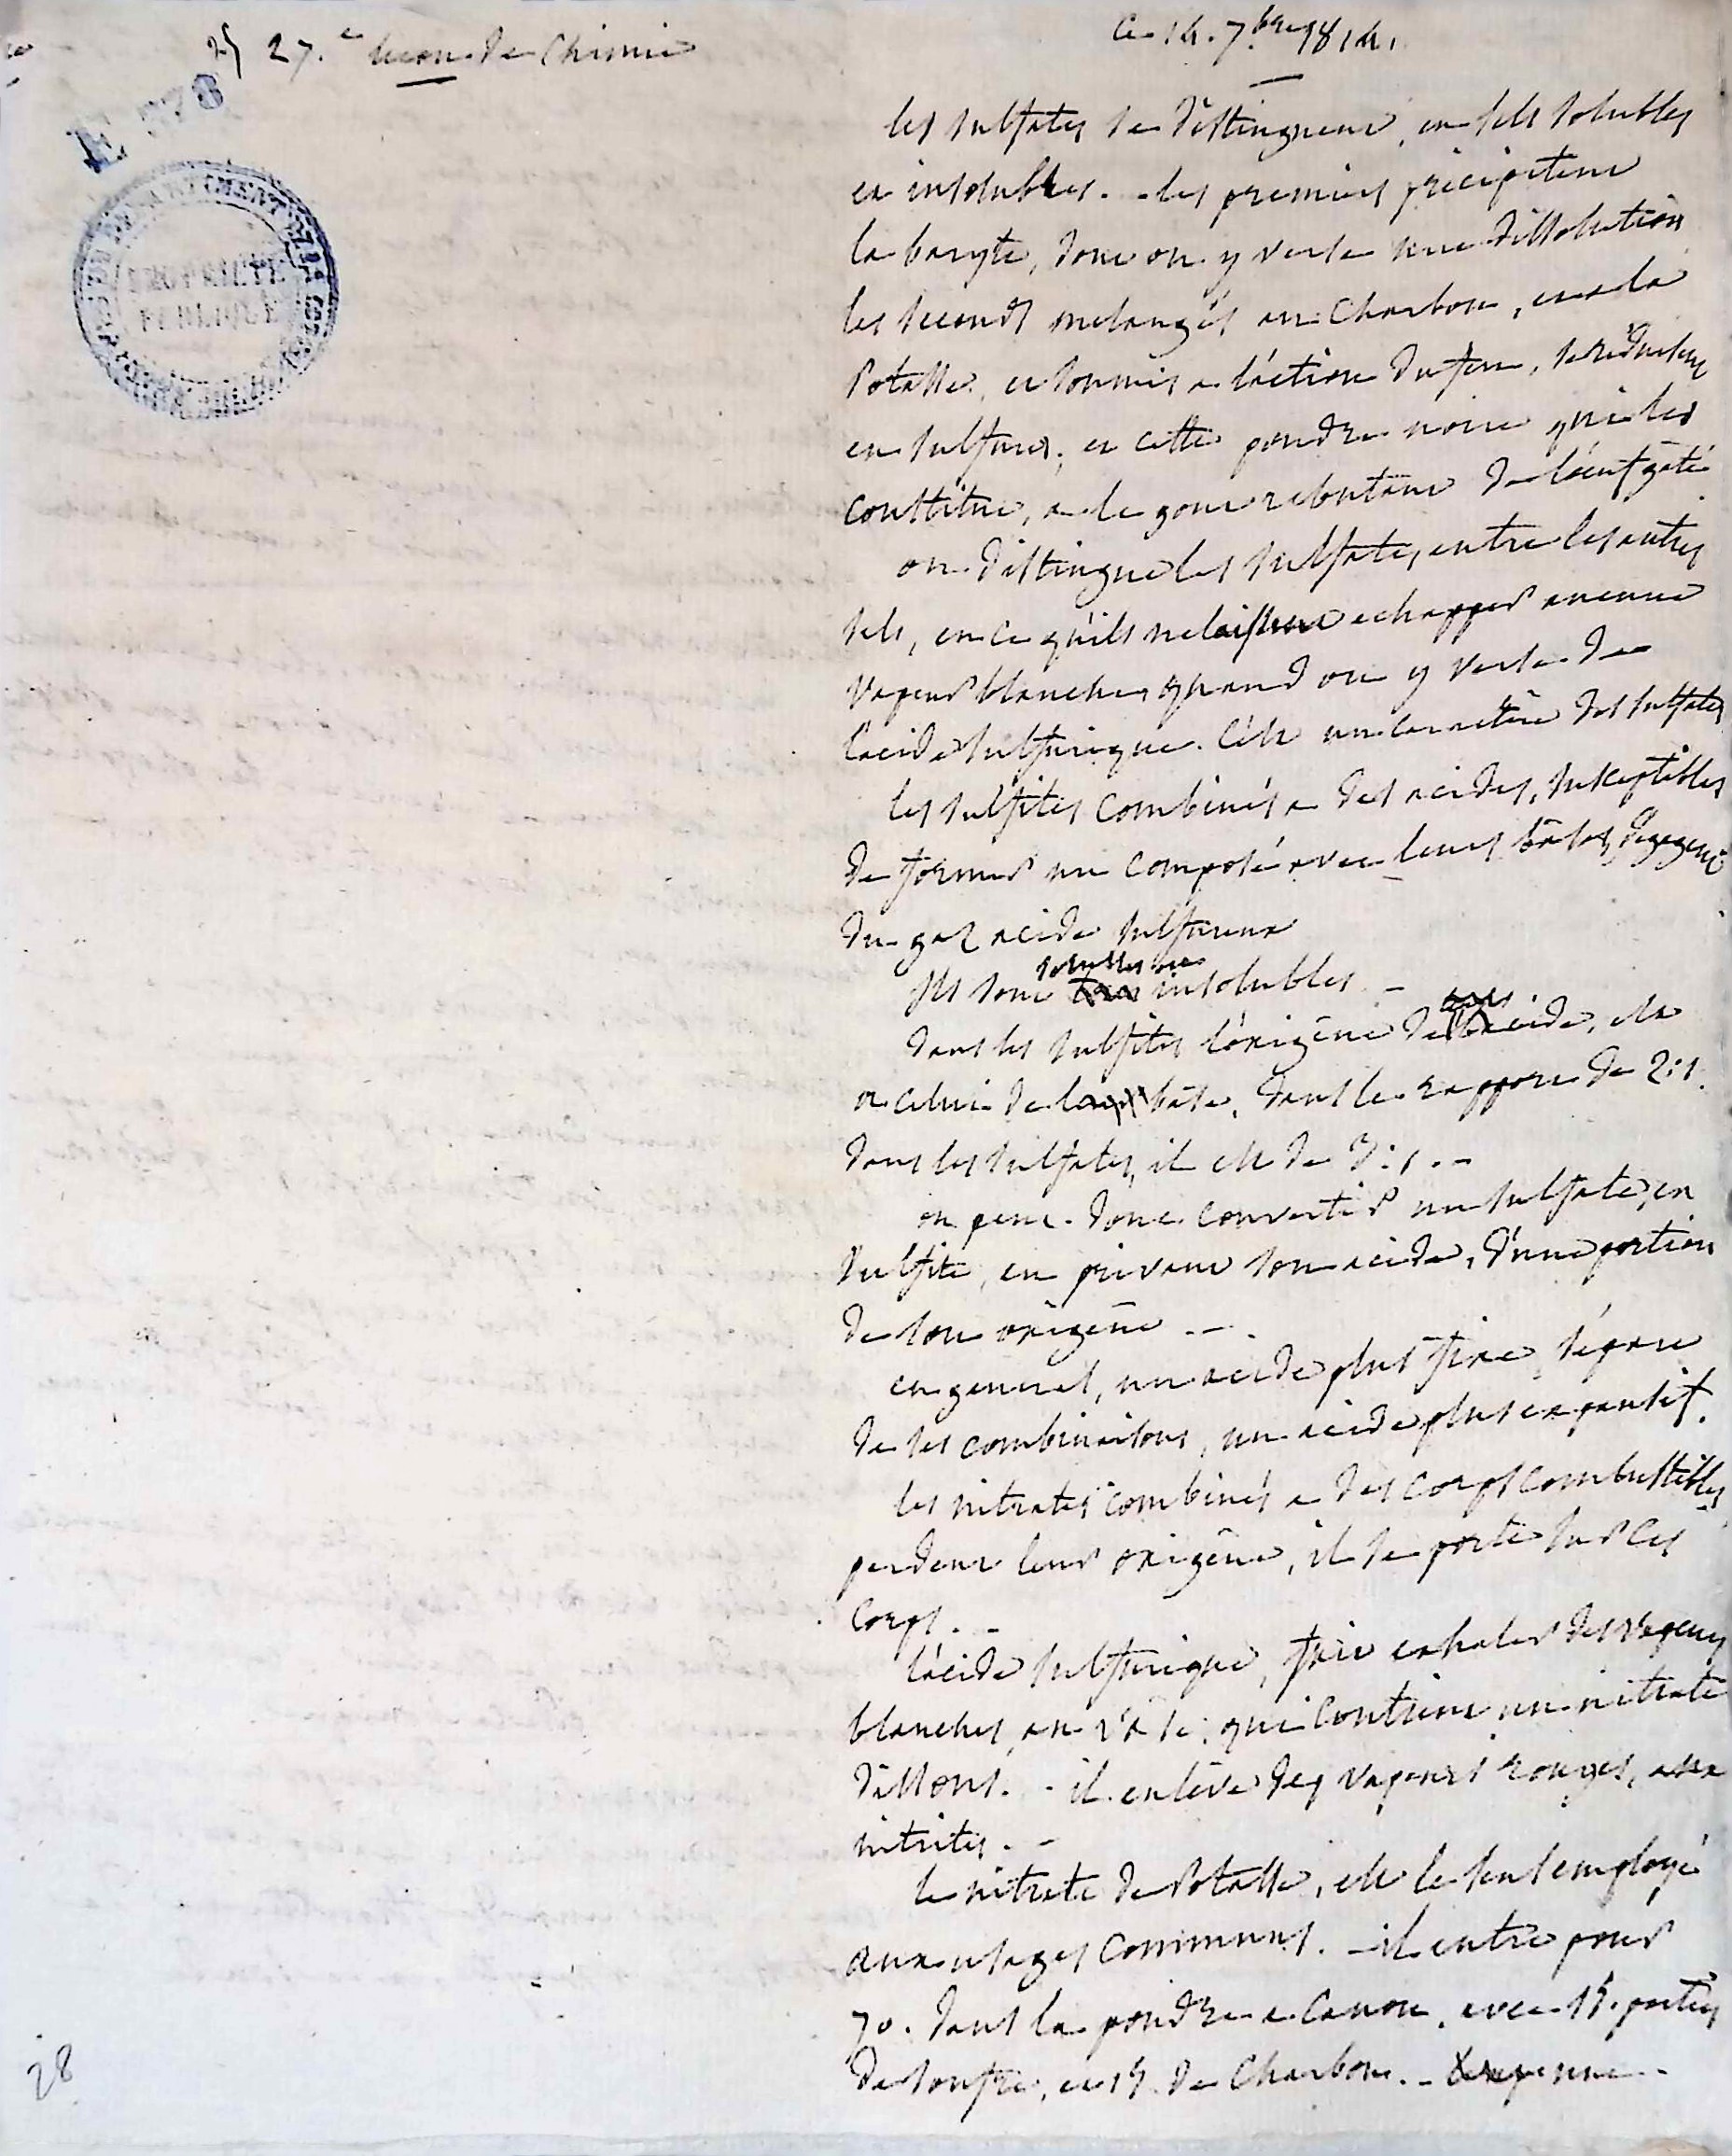 27.e leçon de Chimie
E 778
PROPRIÉTÉ
PUBLIQUE
28
ce 14. 7.bre 1814.
les sulfates se distinguent, en sels solubles
et insolubles. - les premiers précipitent
la baryte, dont on y verse une dissolution
les seconds melangés au Charbon, et a la
Potasse, et soumis a l'action du feu, se réduisent
en sulfures, et cette poudre noire qui les
constitue, a le gout rebutant de l'oeuf gâté
on distingue les sulfates, entre les autres
sels, en ce qu'ils ne laissent echapper aucune
vapeur blanche, quand on y verse de
l'acide sulfurique. C'est un caractère des sulfates
les sulfites combinés a des acides, susceptibles
de former un composé avec leurs bâses, dégagent
du gaz acide sulfureux
solubles ou
Ils sont insolubles. -
dans les sulfites l'oxigène de acide, est
a celui de la bâse, dans le rapport de 2:1.
dans les sulfates, il est de 3:1. -
on peut donc convertir un sulfate, en
sulfite, en privant son acide, d'une portion
de son oxigène - .
en general, un acide plus fixe, sépare
de ses combinaisons, un acide plus expansif.
les nitrates combinés a des corps combustibles
perdent leur oxigène, il se porte sur ces
corps. -
l'acide sulfurique, fait exhaler des vapeurs
blanches, au vâse qui contient un nitrate
dissous. - il enlève des vapeurs rouges, aux
nitrites. -
le nitrate de Potasse, est le seul employé
aux usages communs. - il entre pour
70. dans la poudre a Canon, avec 15. parties
de soufre, et 15. de Charbon. -